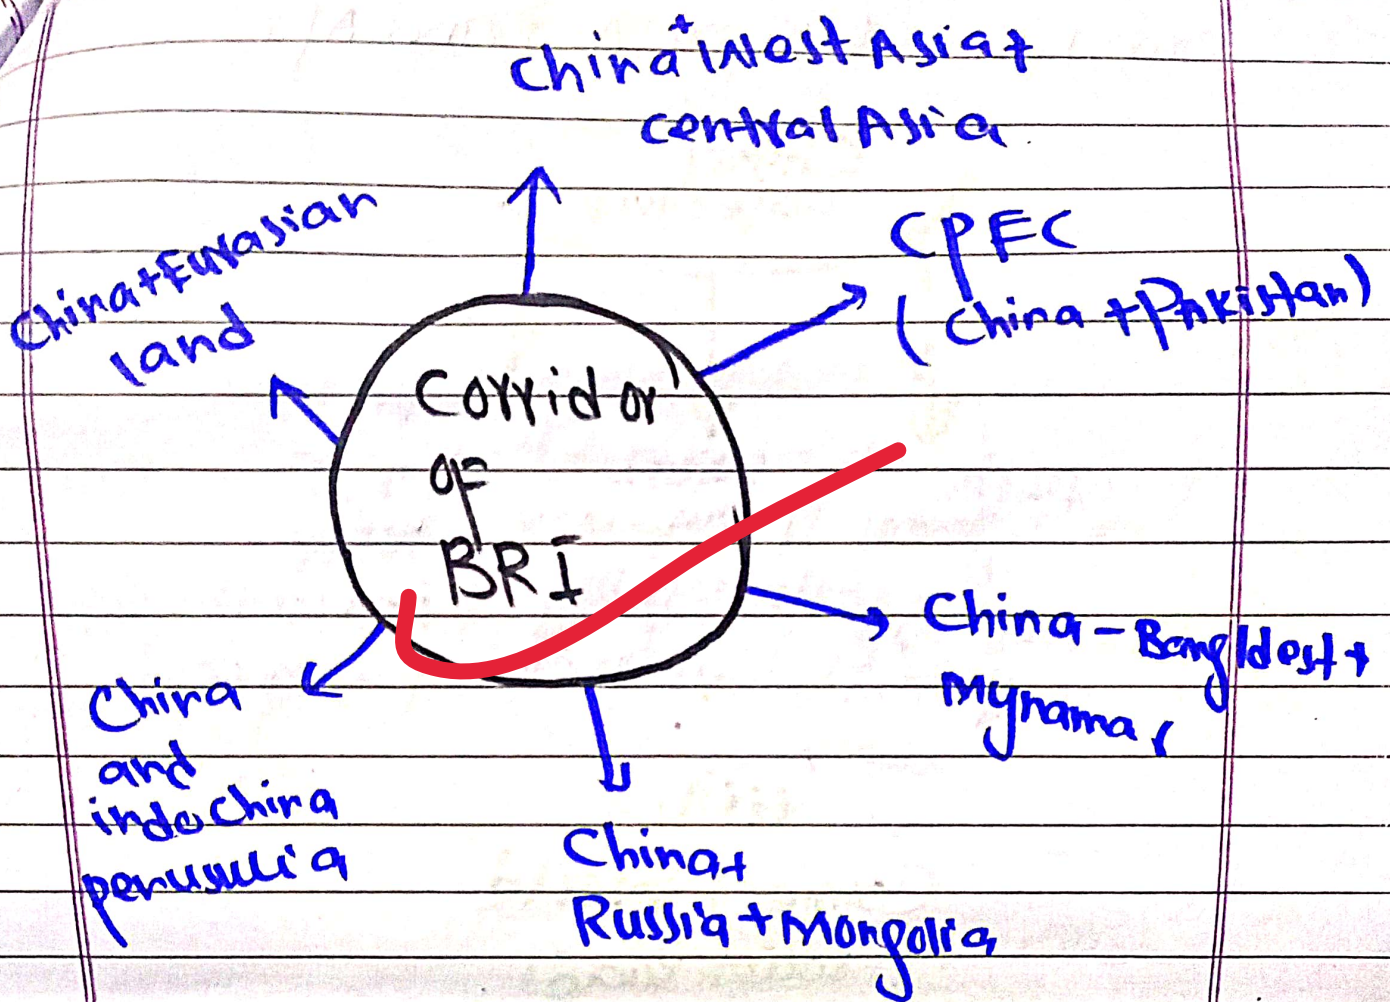 China + West Asia +
central Asia
CPEC
(China + Pakistan)
China + Eurasian
land
Corridor
OF
BRI
China - Bangldest +
Mynamar
China
and
indochina
perusulia
China +
Russia + Mongolia